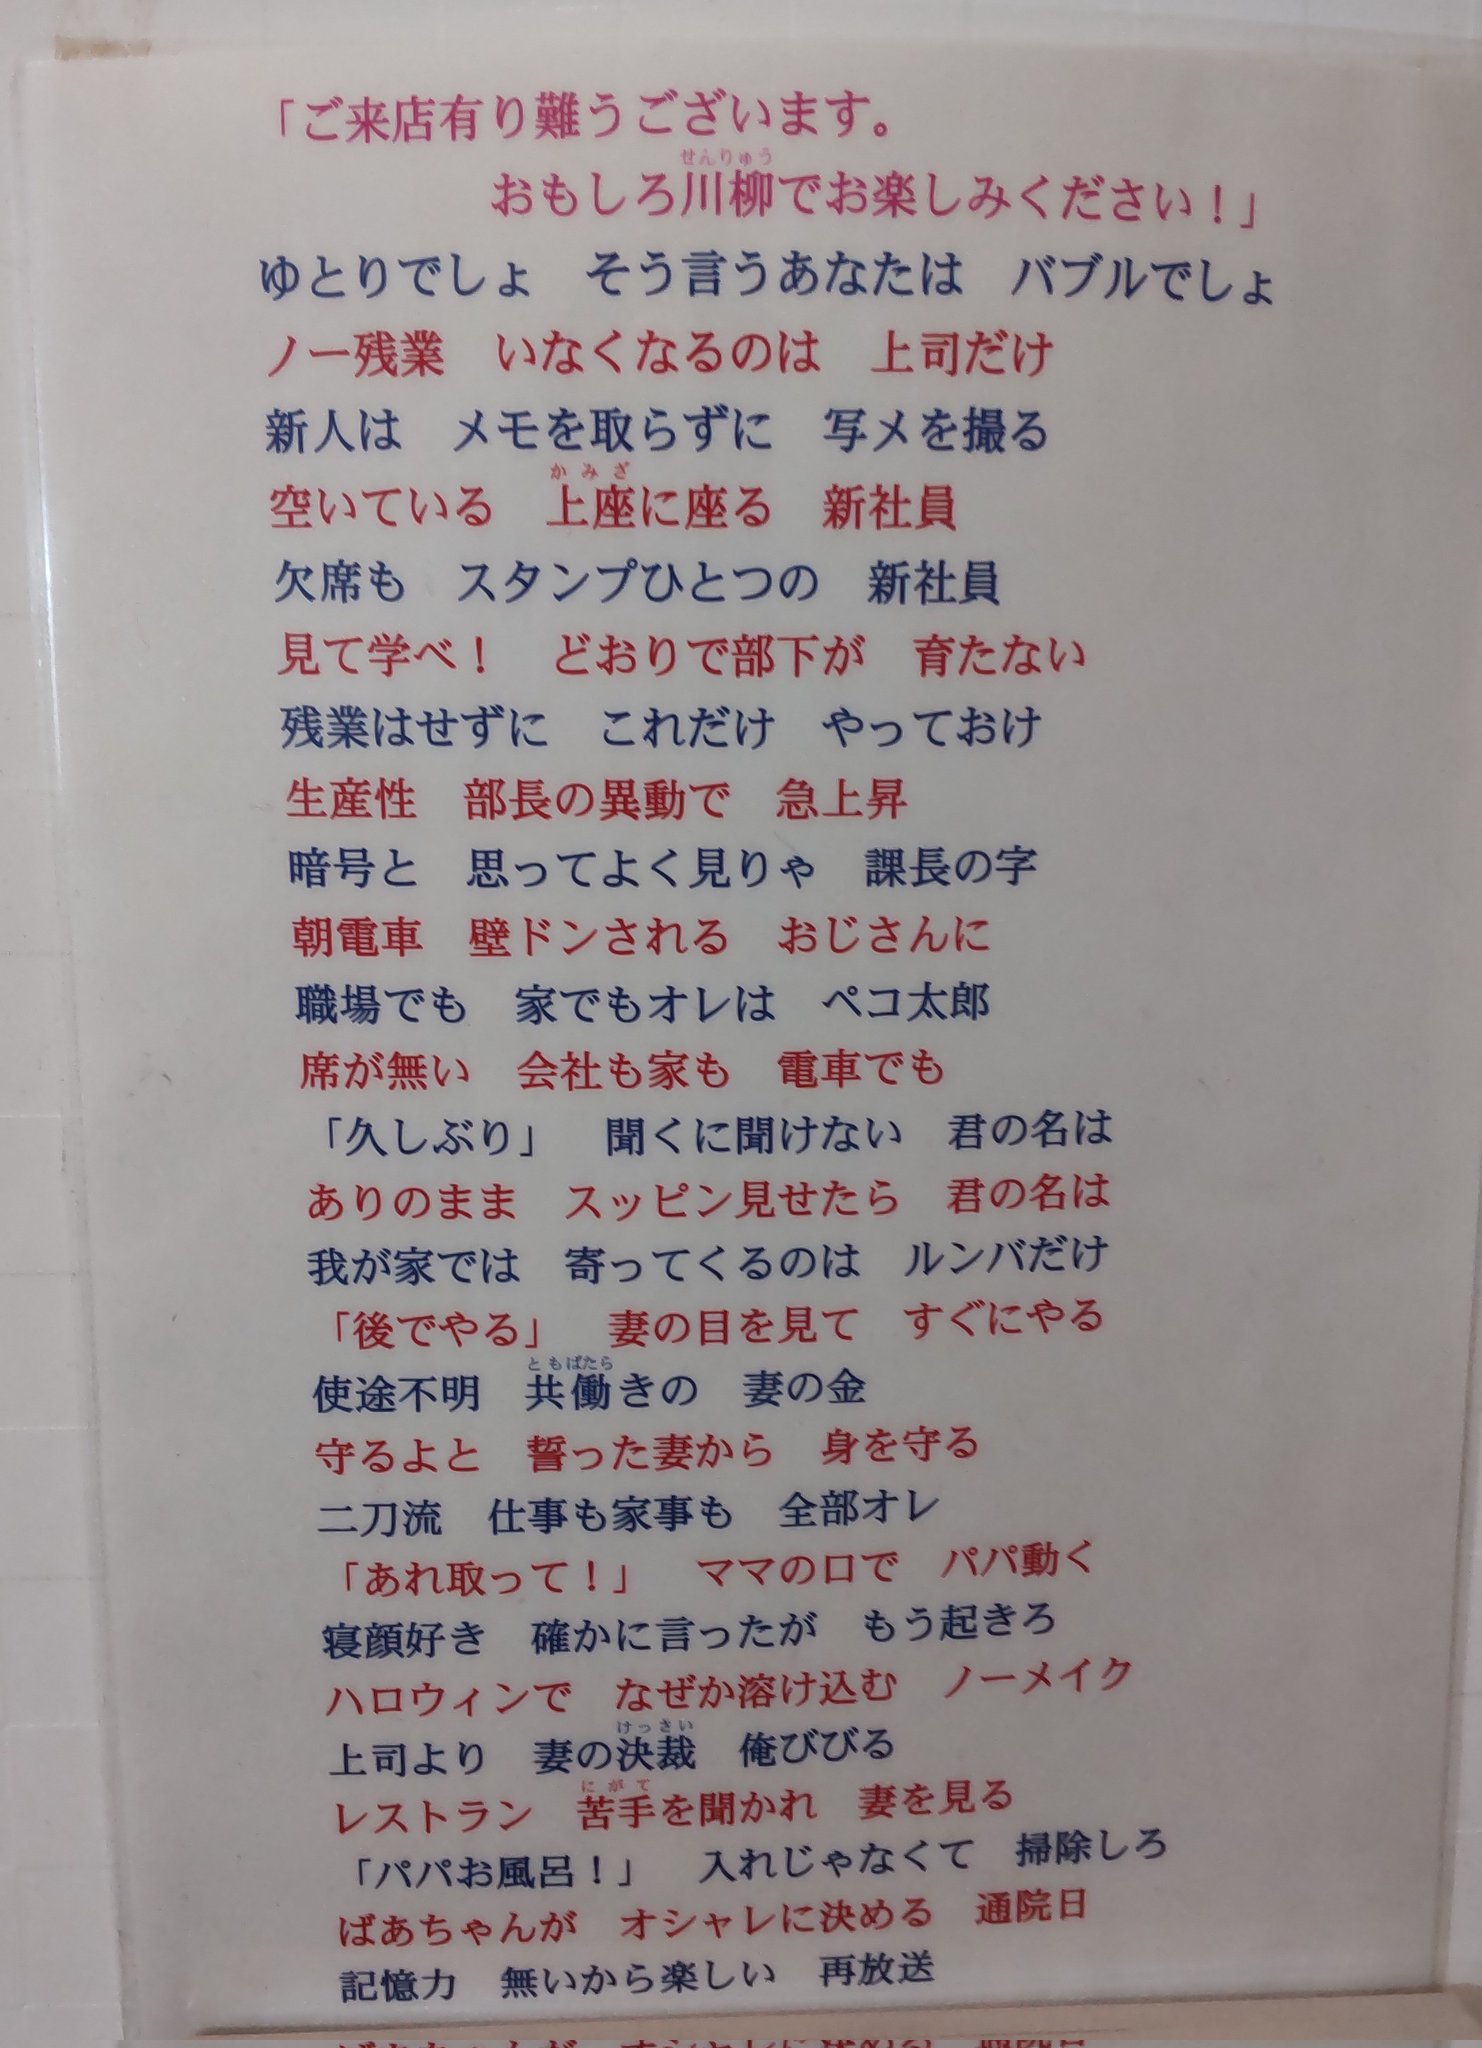 「ご来店有り難うございます。
せんりゅう
おもしろ川柳でお楽しみください！」
ゆとりでしょ　そう言うあなたは　バブルでしょ
ノー残業　いなくなるのは　上司だけ
新人は　メモを取らずに　写メを撮る
かみざ
空いている　上座に座る　新社員
欠席も　スタンプひとつの　新社員
見て学べ！　どおりで部下が　育たない
残業はせずに　これだけ　やっておけ
生産性　部長の異動で　急上昇
暗号と　思ってよく見りゃ　課長の字
朝電車　壁ドンされる　おじさんに
職場でも　家でもオレは　ペコ太郎
席が無い　会社も家も　電車でも
「久しぶり」　聞くに聞けない　君の名は
ありのまま　スッピン見せたら　君の名は
我が家では　寄ってくるのは　ルンバだけ
「後でやる」　妻の目を見て　すぐにやる
ともばたら
使途不明　共働きの　妻の金
守るよと　誓った妻から　身を守る
二刀流　仕事も家事も　全部オレ
「あれ取って！」　ママの口で　パパ動く
寝顔好き　確かに言ったが　もう起きろ
ハロウィンで　なぜか溶け込む　ノーメイク
けっさい
上司より　妻の決裁　俺びびる
にがて
レストラン　苦手を聞かれ　妻を見る
「パパお風呂！」　入れじゃなくて　掃除しろ
ばあちゃんが　オシャレに決める　通院日
記憶力　無いから楽しい　再放送